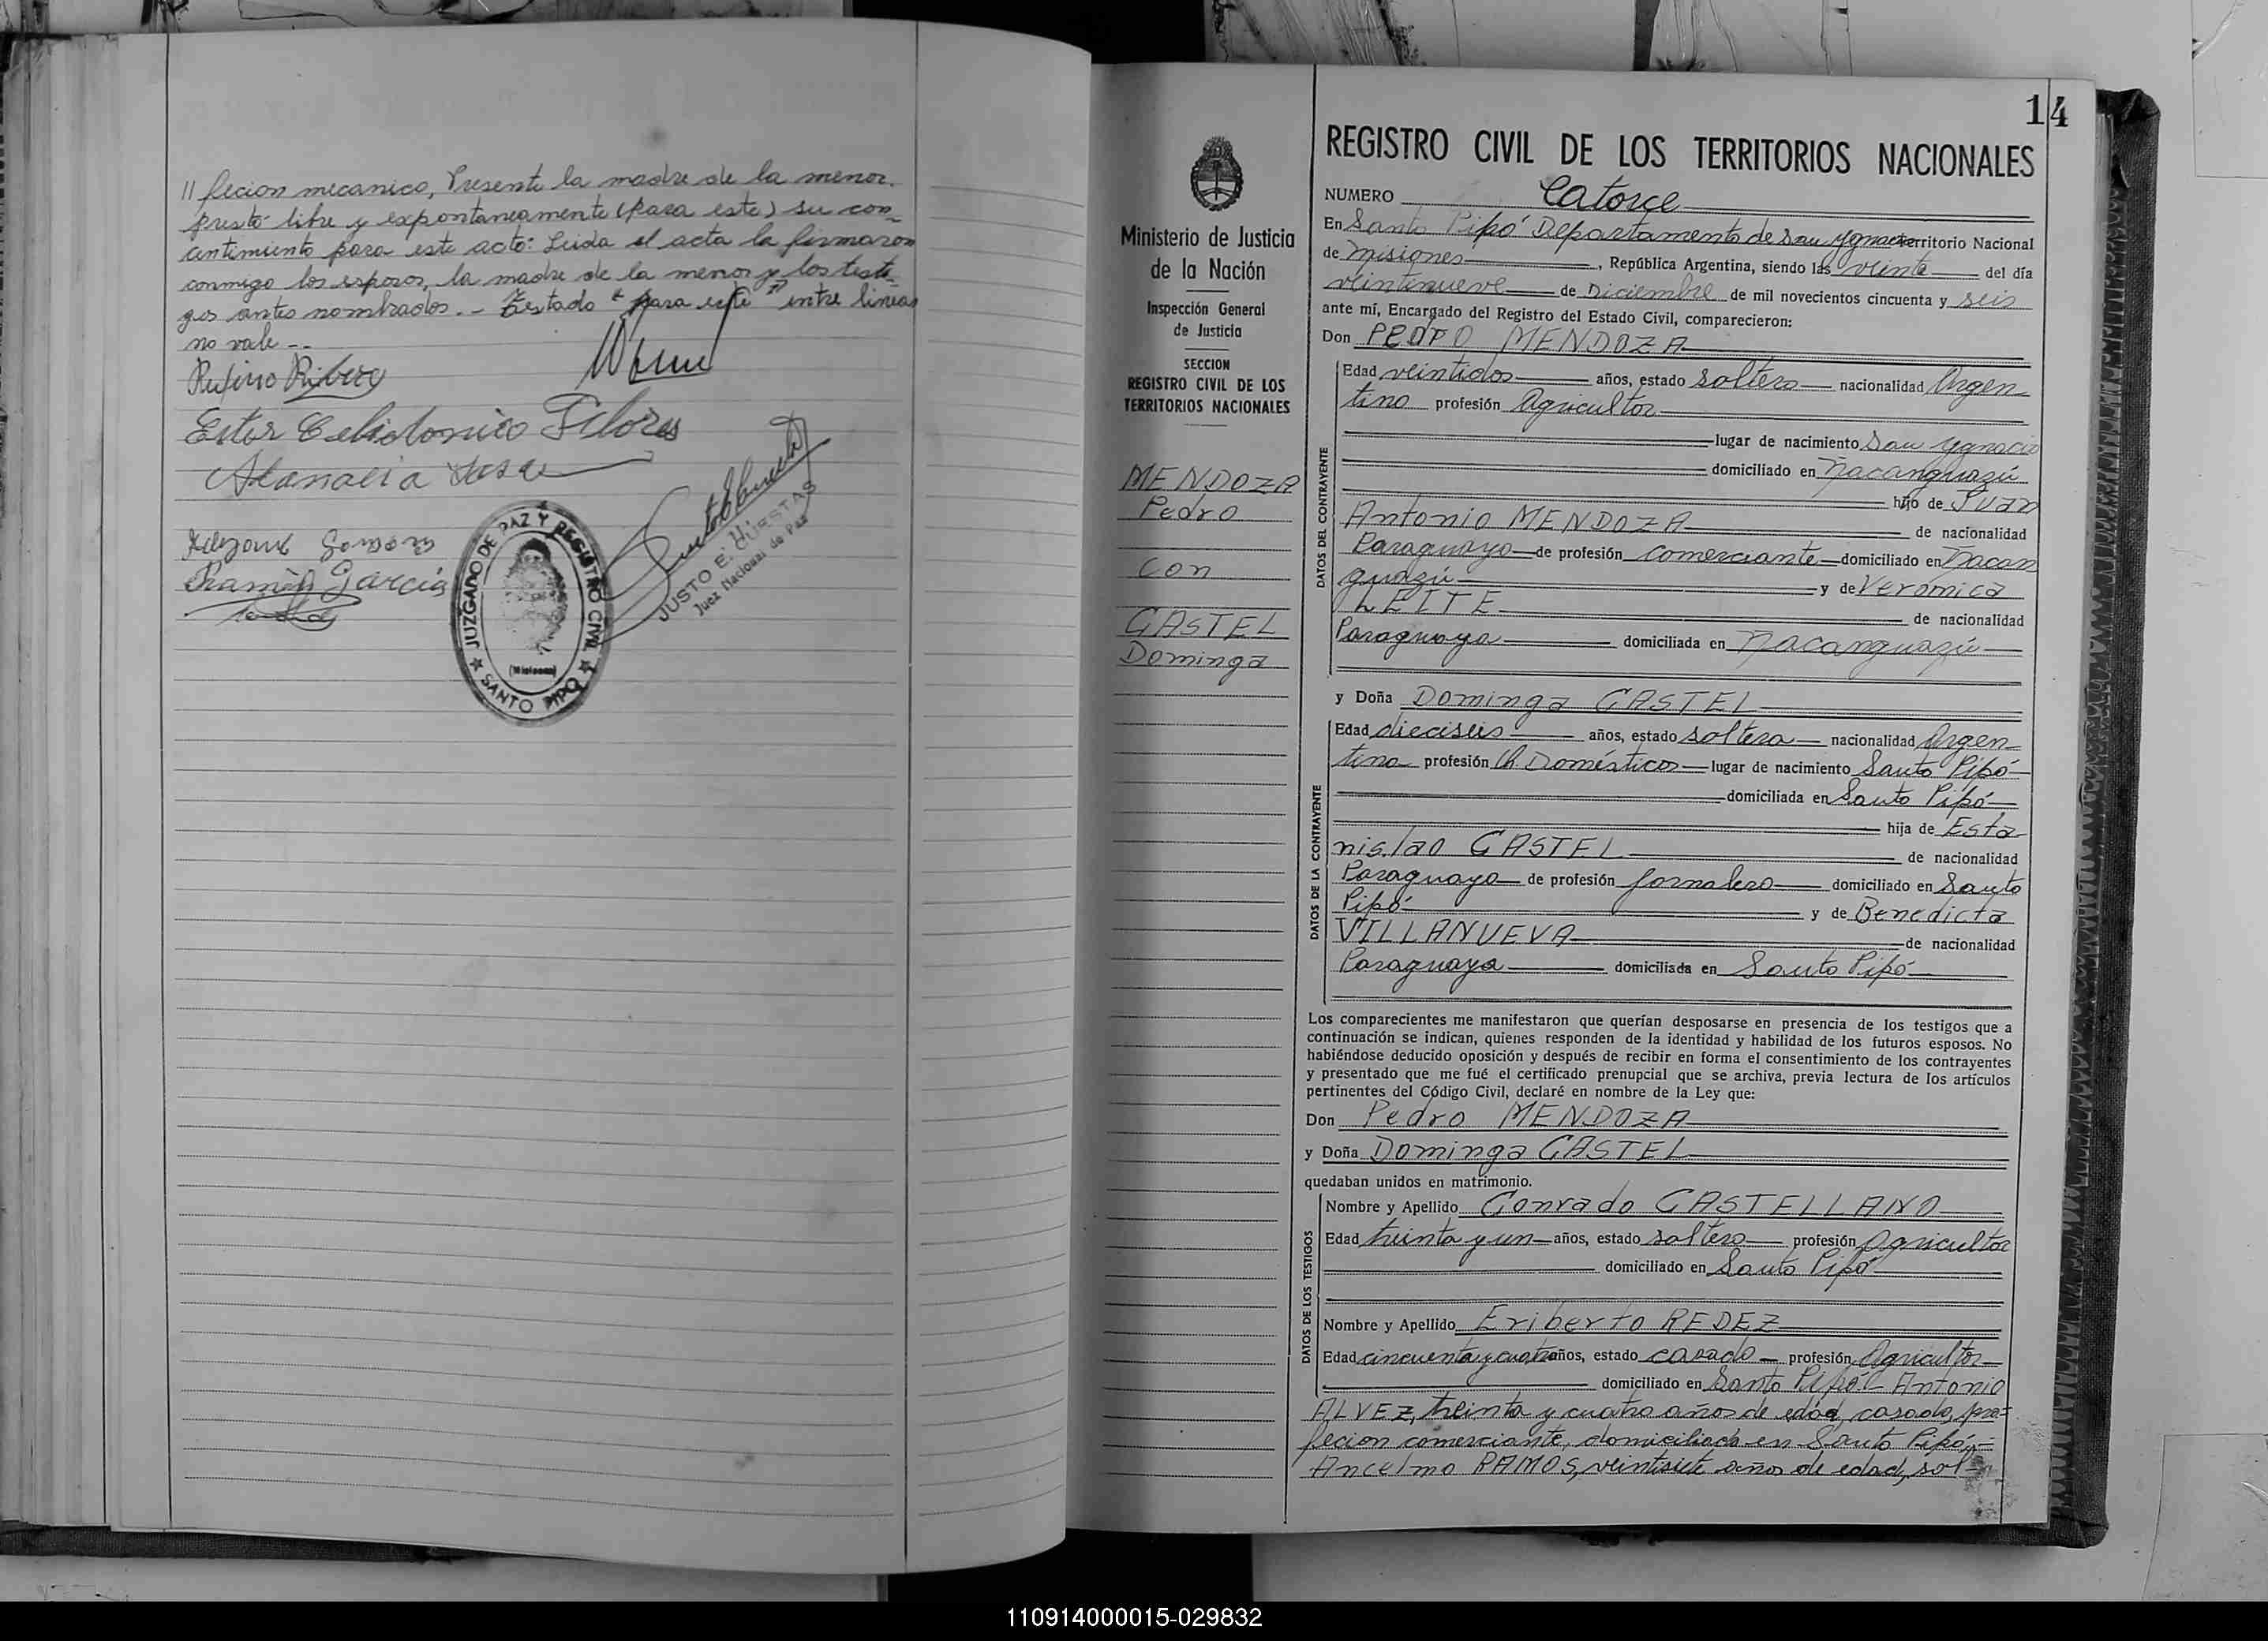 // fecion mecanico, Presente la madre de la menor.
prestó libre y expontaneamente (para este) su con-
centimiento para este acto: Leida el acta la firmaron
conmigo los esposos, la madre de la menor y los testi-
gos antes nombrados. - Testado "para este" entre lineas
no vale --
Rufino Ribero
Ester Celidonio Flores
Ramón García
JUZGADO DE PAZ Y REGISTRO CIVIL
(Misiones)
SANTO PIPO
JUSTO E. CUESTAS
Juez Nacional de Paz
14
Ministerio de Justicia
de la Nación
Inspección General
de Justicia
SECCION
REGISTRO CIVIL DE LOS
TERRITORIOS NACIONALES
MENDOZA
Pedro
con
CASTEL
Dominga
REGISTRO CIVIL DE LOS TERRITORIOS NACIONALES
NUMERO Catorce
En Santo Pipó Departamento de San Ygnacio territorio Nacional
de Misiones, República Argentina, siendo las veinte del día
veintinueve de Diciembre de mil novecientos cincuenta y seis
ante mí, Encargado del Registro del Estado Civil, comparecieron:
Don PEDRO MENDOZA
DATOS DEL CONTRAYENTE
Edad veintidos años, estado soltero nacionalidad Argen-
tino profesión Agricultor
lugar de nacimiento San Ygnacio
domiciliado en Ñacanguazú
hijo de Juan
Antonio MENDOZA de nacionalidad
Paraguayo de profesión comerciante domiciliado en Ñacan
guazú y de Veronica
LEITE de nacionalidad
Paraguaya domiciliada en Ñacanguazú
y Doña Dominga CASTEL
DATOS DE LA CONTRAYENTE
Edad dieciseis años, estado soltera nacionalidad Argen-
tina profesión Q. Domésticos lugar de nacimiento Santo Pipó
domiciliada en Santo Pipó
hija de Esta-
nislao CASTEL de nacionalidad
Paraguayo de profesión Jornalero domiciliado en Santo
Pipó y de Benedicta
VILLANUEVA de nacionalidad
Paraguaya domiciliada en Santo Pipó
Los comparecientes me manifestaron que querían desposarse en presencia de los testigos que a
continuación se indican, quienes responden de la identidad y habilidad de los futuros esposos. No
habiéndose deducido oposición y después de recibir en forma el consentimiento de los contrayentes
y presentado que me fué el certificado prenupcial que se archiva, previa lectura de los artículos
pertinentes del Código Civil, declaré en nombre de la Ley que:
Don Pedro MENDOZA
y Doña Dominga CASTEL
quedaban unidos en matrimonio.
DATOS DE LOS TESTIGOS
Nombre y Apellido Conrado CASTELLANO
Edad treinta y un años, estado soltero profesión Agricultor
domiciliado en Santo Pipó
Nombre y Apellido Eriberto REDEZ
Edad cincuenta y cuatro años, estado casado profesión Agricultor
domiciliado en Santo Pipó - Antonio
ALVEZ, treinta y cuatro años de edad, casado, pro=
fecion comerciante, domiciliado en Santo Pipó.-
Ancelmo RAMOS, veintisiete años de edad, sol-
110914000015-029832